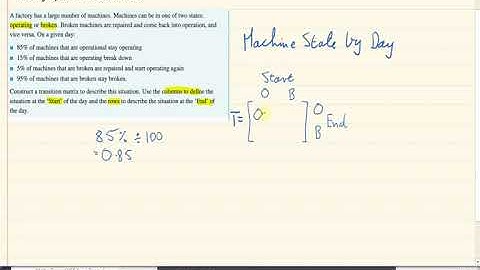 A factory has a large number of machines. Machines can be in one of two states:
operating or broken. Broken machines are repaired and come back into operation, and
vice versa. On a given day:
85% of machines that are operational stay operating
15% of machines that are operating break down
5% of machines that are broken are repaired and start operating again
95% of machines that are broken stay broken.
Construct a transition matrix to describe this situation. Use the columns to define the
situation at the 'Start' of the day and the rows to describe the situation at the 'End' of
the day.
Machine State by Day
Start
O B
T= [ 0. ] O
B
End
85% ÷ 100
= 0.85